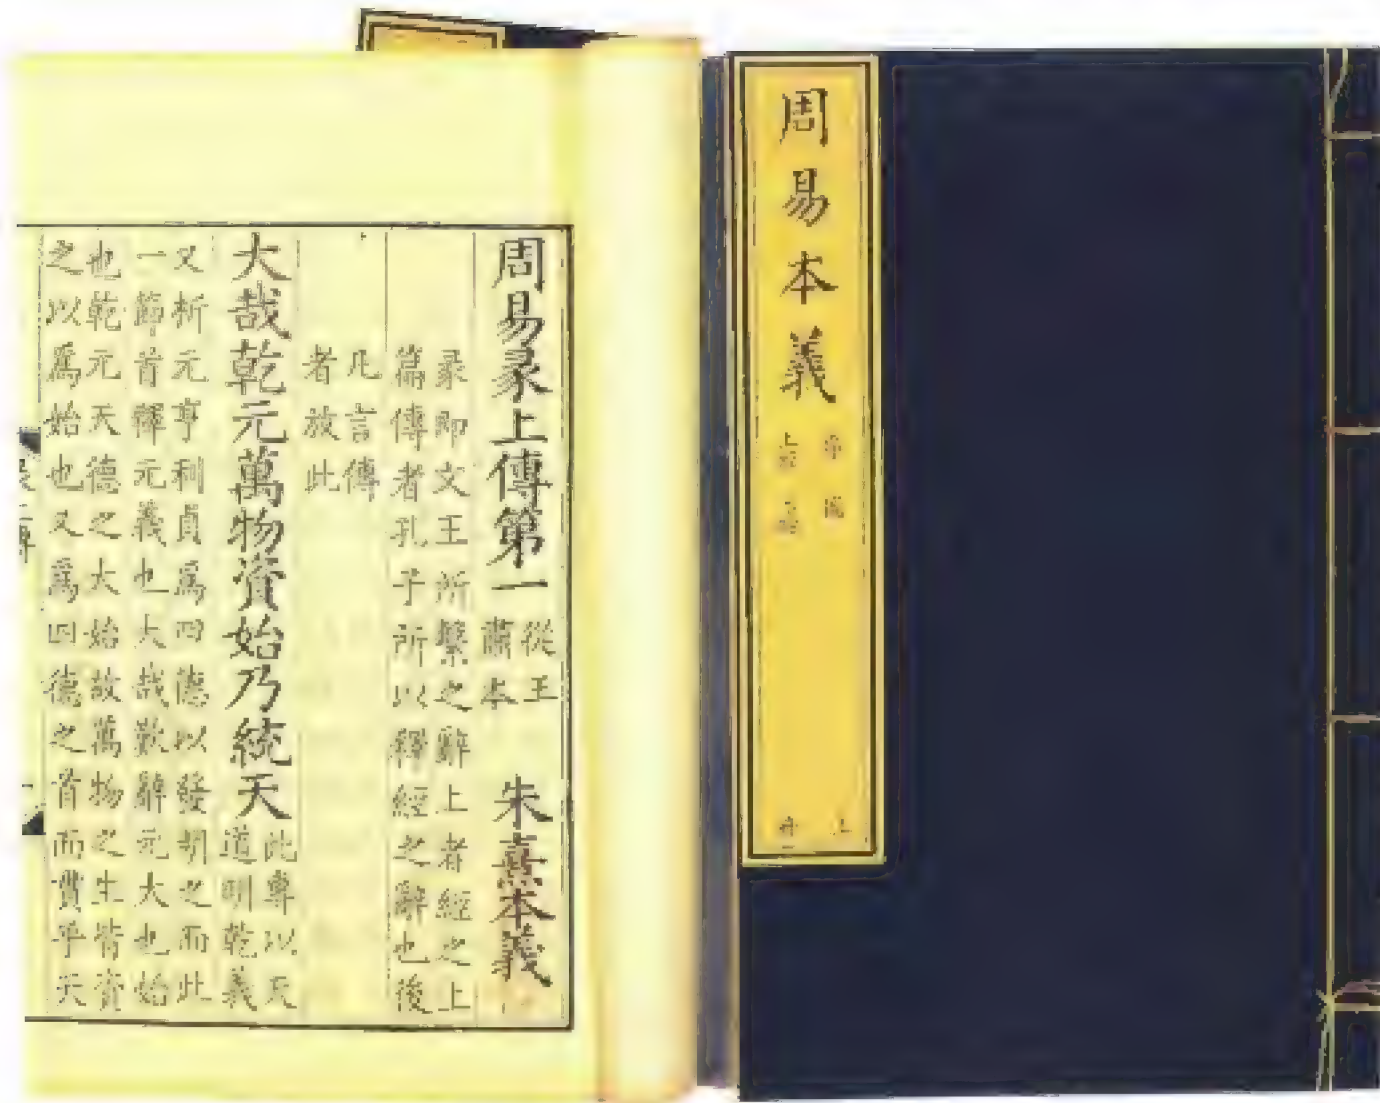 周易本義
周易彖上傳第一從王肅本 朱熹本義
彖即文王所繫之辭上者經之上
篇傳者孔子所以釋經之辭也後
凡言傳
者放此
大哉乾元萬物資始乃統天此專以天
道明乾義
又析元亨利貞爲四德以發明之而此
一節首釋元義也大哉歎辭元大也始
也乾元天德之大始故萬物之生皆資
之以爲始也又爲四德之首而貫乎天